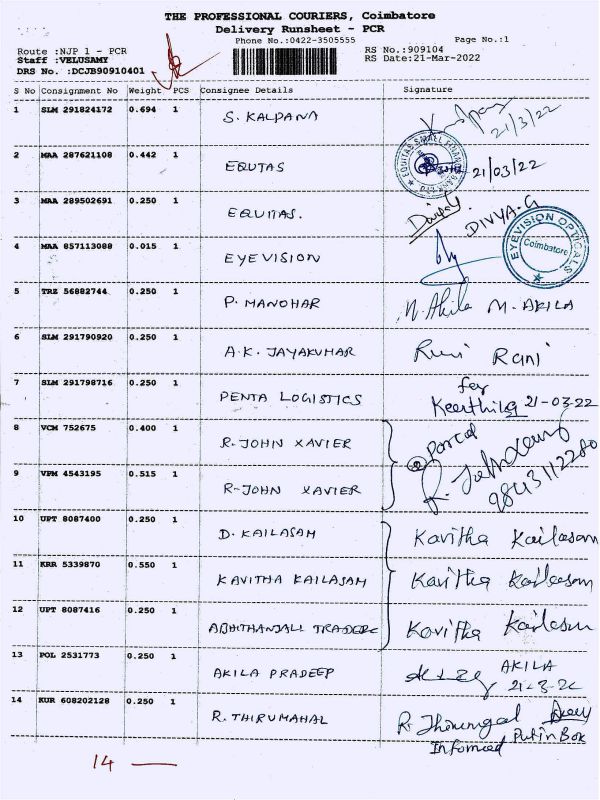 THE PROFESSIONAL COURIERS, Coimbatore
Delivery Runsheet - PCR
Phone No.:0422-3505555
Page No.:1
Route :NJP 1 - PCR
RS No.:909104
Staff :VELUSAMY
RS Date:21-Mar-2022
DRS No. :DCJB90910401
S No Consignment No Weight PCS Consignee Details Signature
1 SLM 291824172 0.694 1 S. KALPANA 21/3/22
2 MAA 287621108 0.442 1 EQUTAS EQUITAS SMALL FINANCE BANK LTD 21/03/22
3 MAA 289502691 0.250 1 EQUITAS. Divya.G DIVYA.G
4 MAA 857113088 0.015 1 EYEVISION EYEVISION OPTICALS Coimbatore
5 TRZ 56882744 0.250 1 P. MANOHAR M. Akila M. AKILA
6 SLM 291790920 0.250 1 A.K. JAYAKUMAR Rani Rani
7 SLM 291798716 0.250 1 PENTA LOGISTICS for Keerthika 21-03-22
8 VCM 752675 0.400 1 R. JOHN XAVIER Parcel
9 VPM 4543195 0.515 1 R-JOHN XAVIER R. John Xavier 9843112280
10 UPT 8087400 0.250 1 D. KAILASAM Kavitha Kailasam
11 KRR 5339870 0.550 1 KAVITHA KAILASAM Kavitha Kailasam
12 UPT 8087416 0.250 1 ABHITHANJALI TRADERS Kavitha Kailasam
13 POL 2531773 0.250 1 AKILA PRADEEP AKILA
21-3-22
14 KUR 608202128 0.250 1 R. THIRUMAHAL R. Thirumagal
Informed Put in Box
14 —